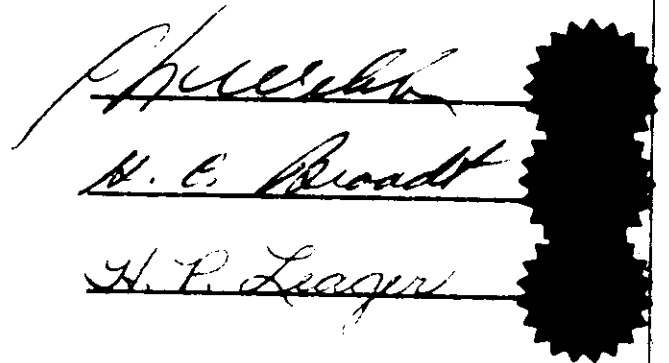 H. E. Broadt
H. P. Leager